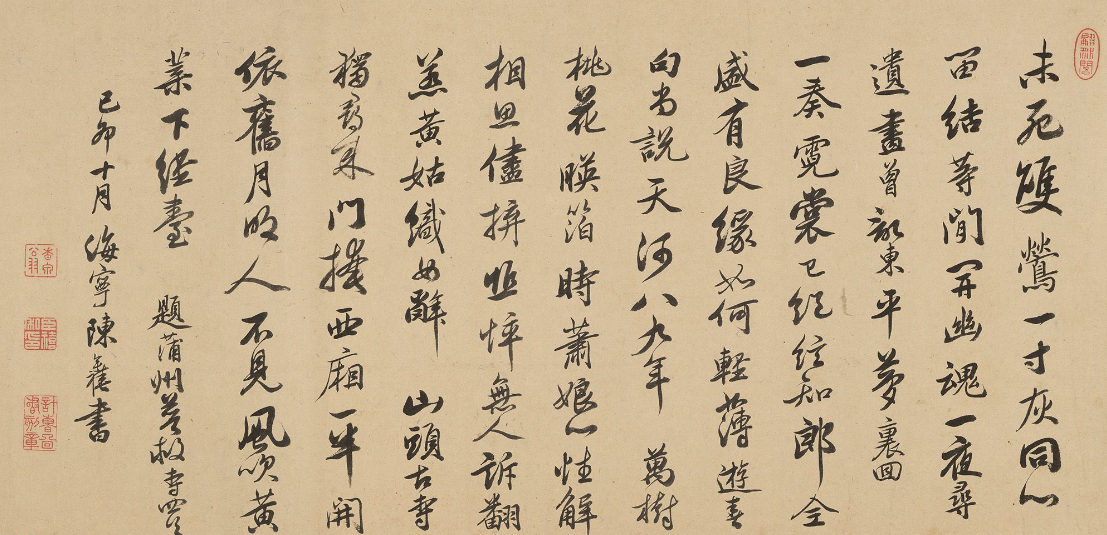 未死雙鶯一寸灰同心
留結等閒開幽魂一夜尋
遺畫曾説東平夢裏回
一奏霓裳已絕絃知郎今
盛有良緣如何輕薄遊春
向尚說天河八九年　萬樹
桃花暎箔時蕭娘心性解
相思儘拚坦怦無人訴翻
羨黃姑織女辭　山頭古寺
獨尋來門掩西廂一半開
依舊月明人不見風吹黃
葉下經臺　題蒲州普救寺四首
己卯十月海寧陳奕書